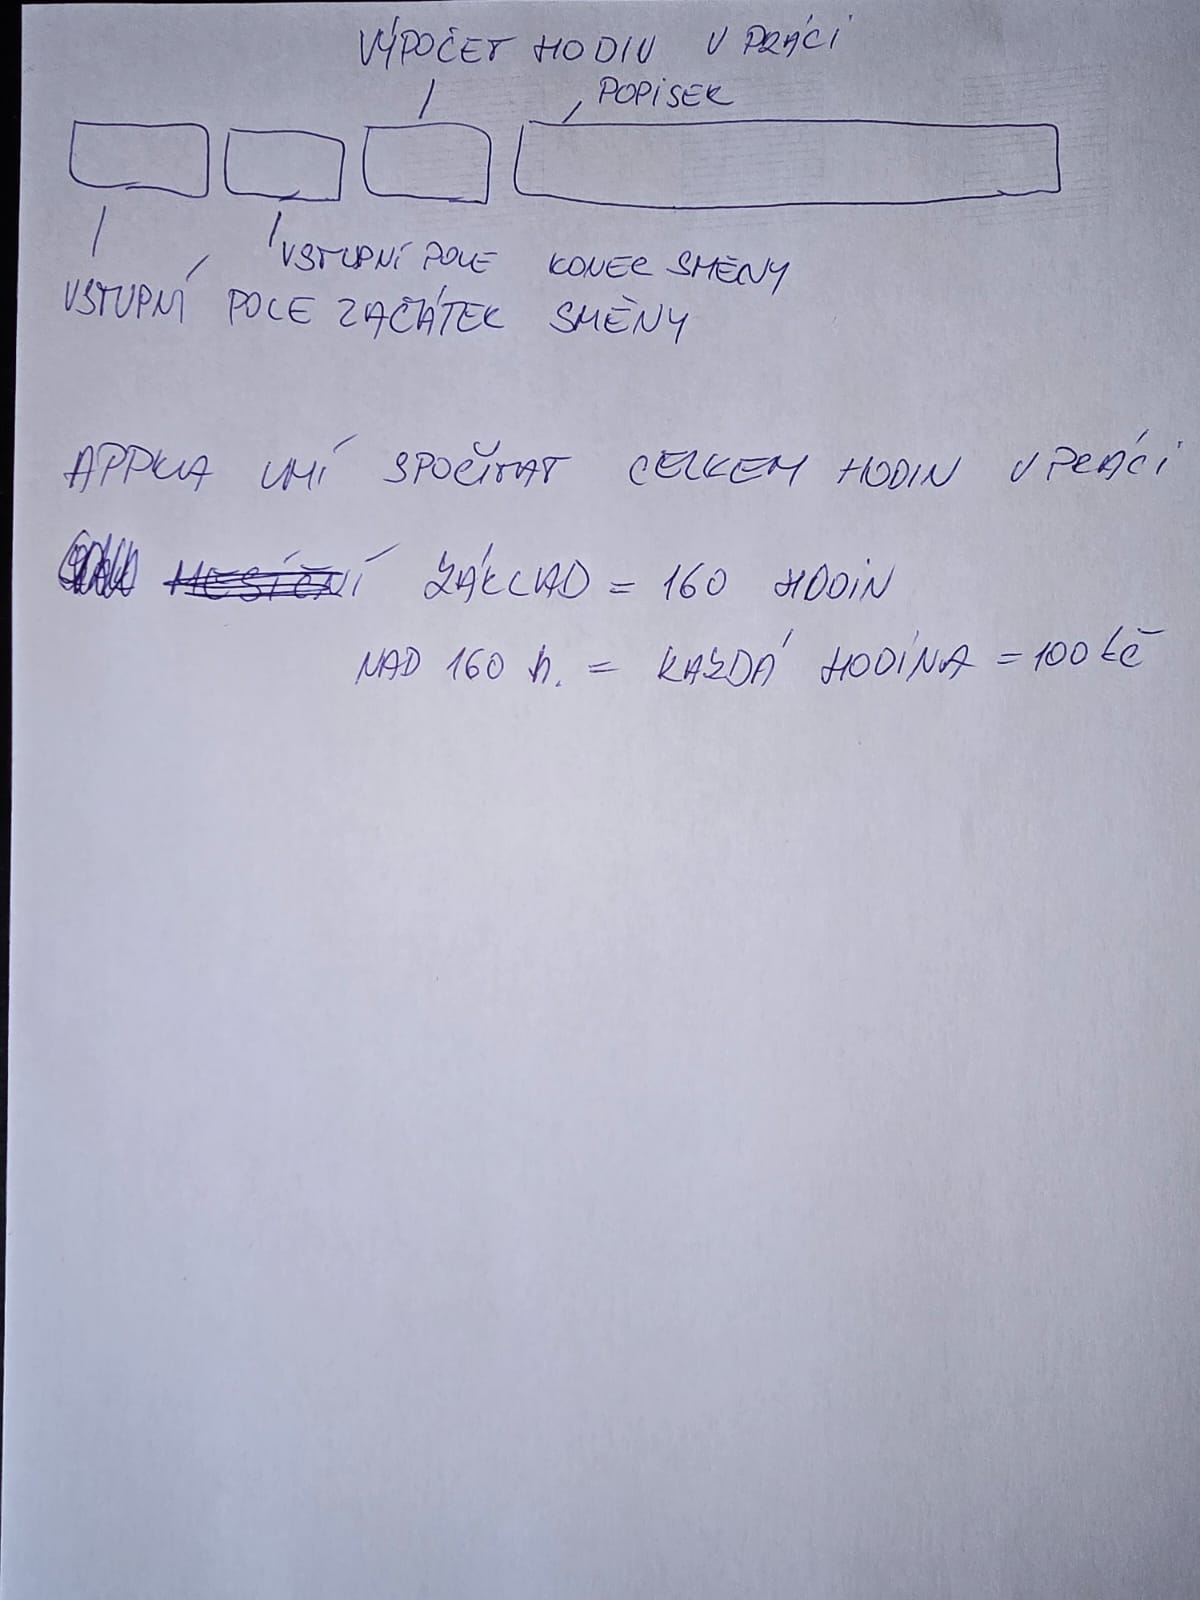 VÝPOČET HODIN V PRÁCI
POPISEK
VSTUPNÍ POLE KONEC SMĚNY
VSTUPNÍ POLE ZAČÁTEK SMĚNY
APPKA UMÍ SPOČÍTAT CELKEM HODIN V PRÁCI
MĚSÍČNÍ ZÁKLAD = 160 HODIN
NAD 160 h. = KAŽDÁ HODINA = 100 Kč